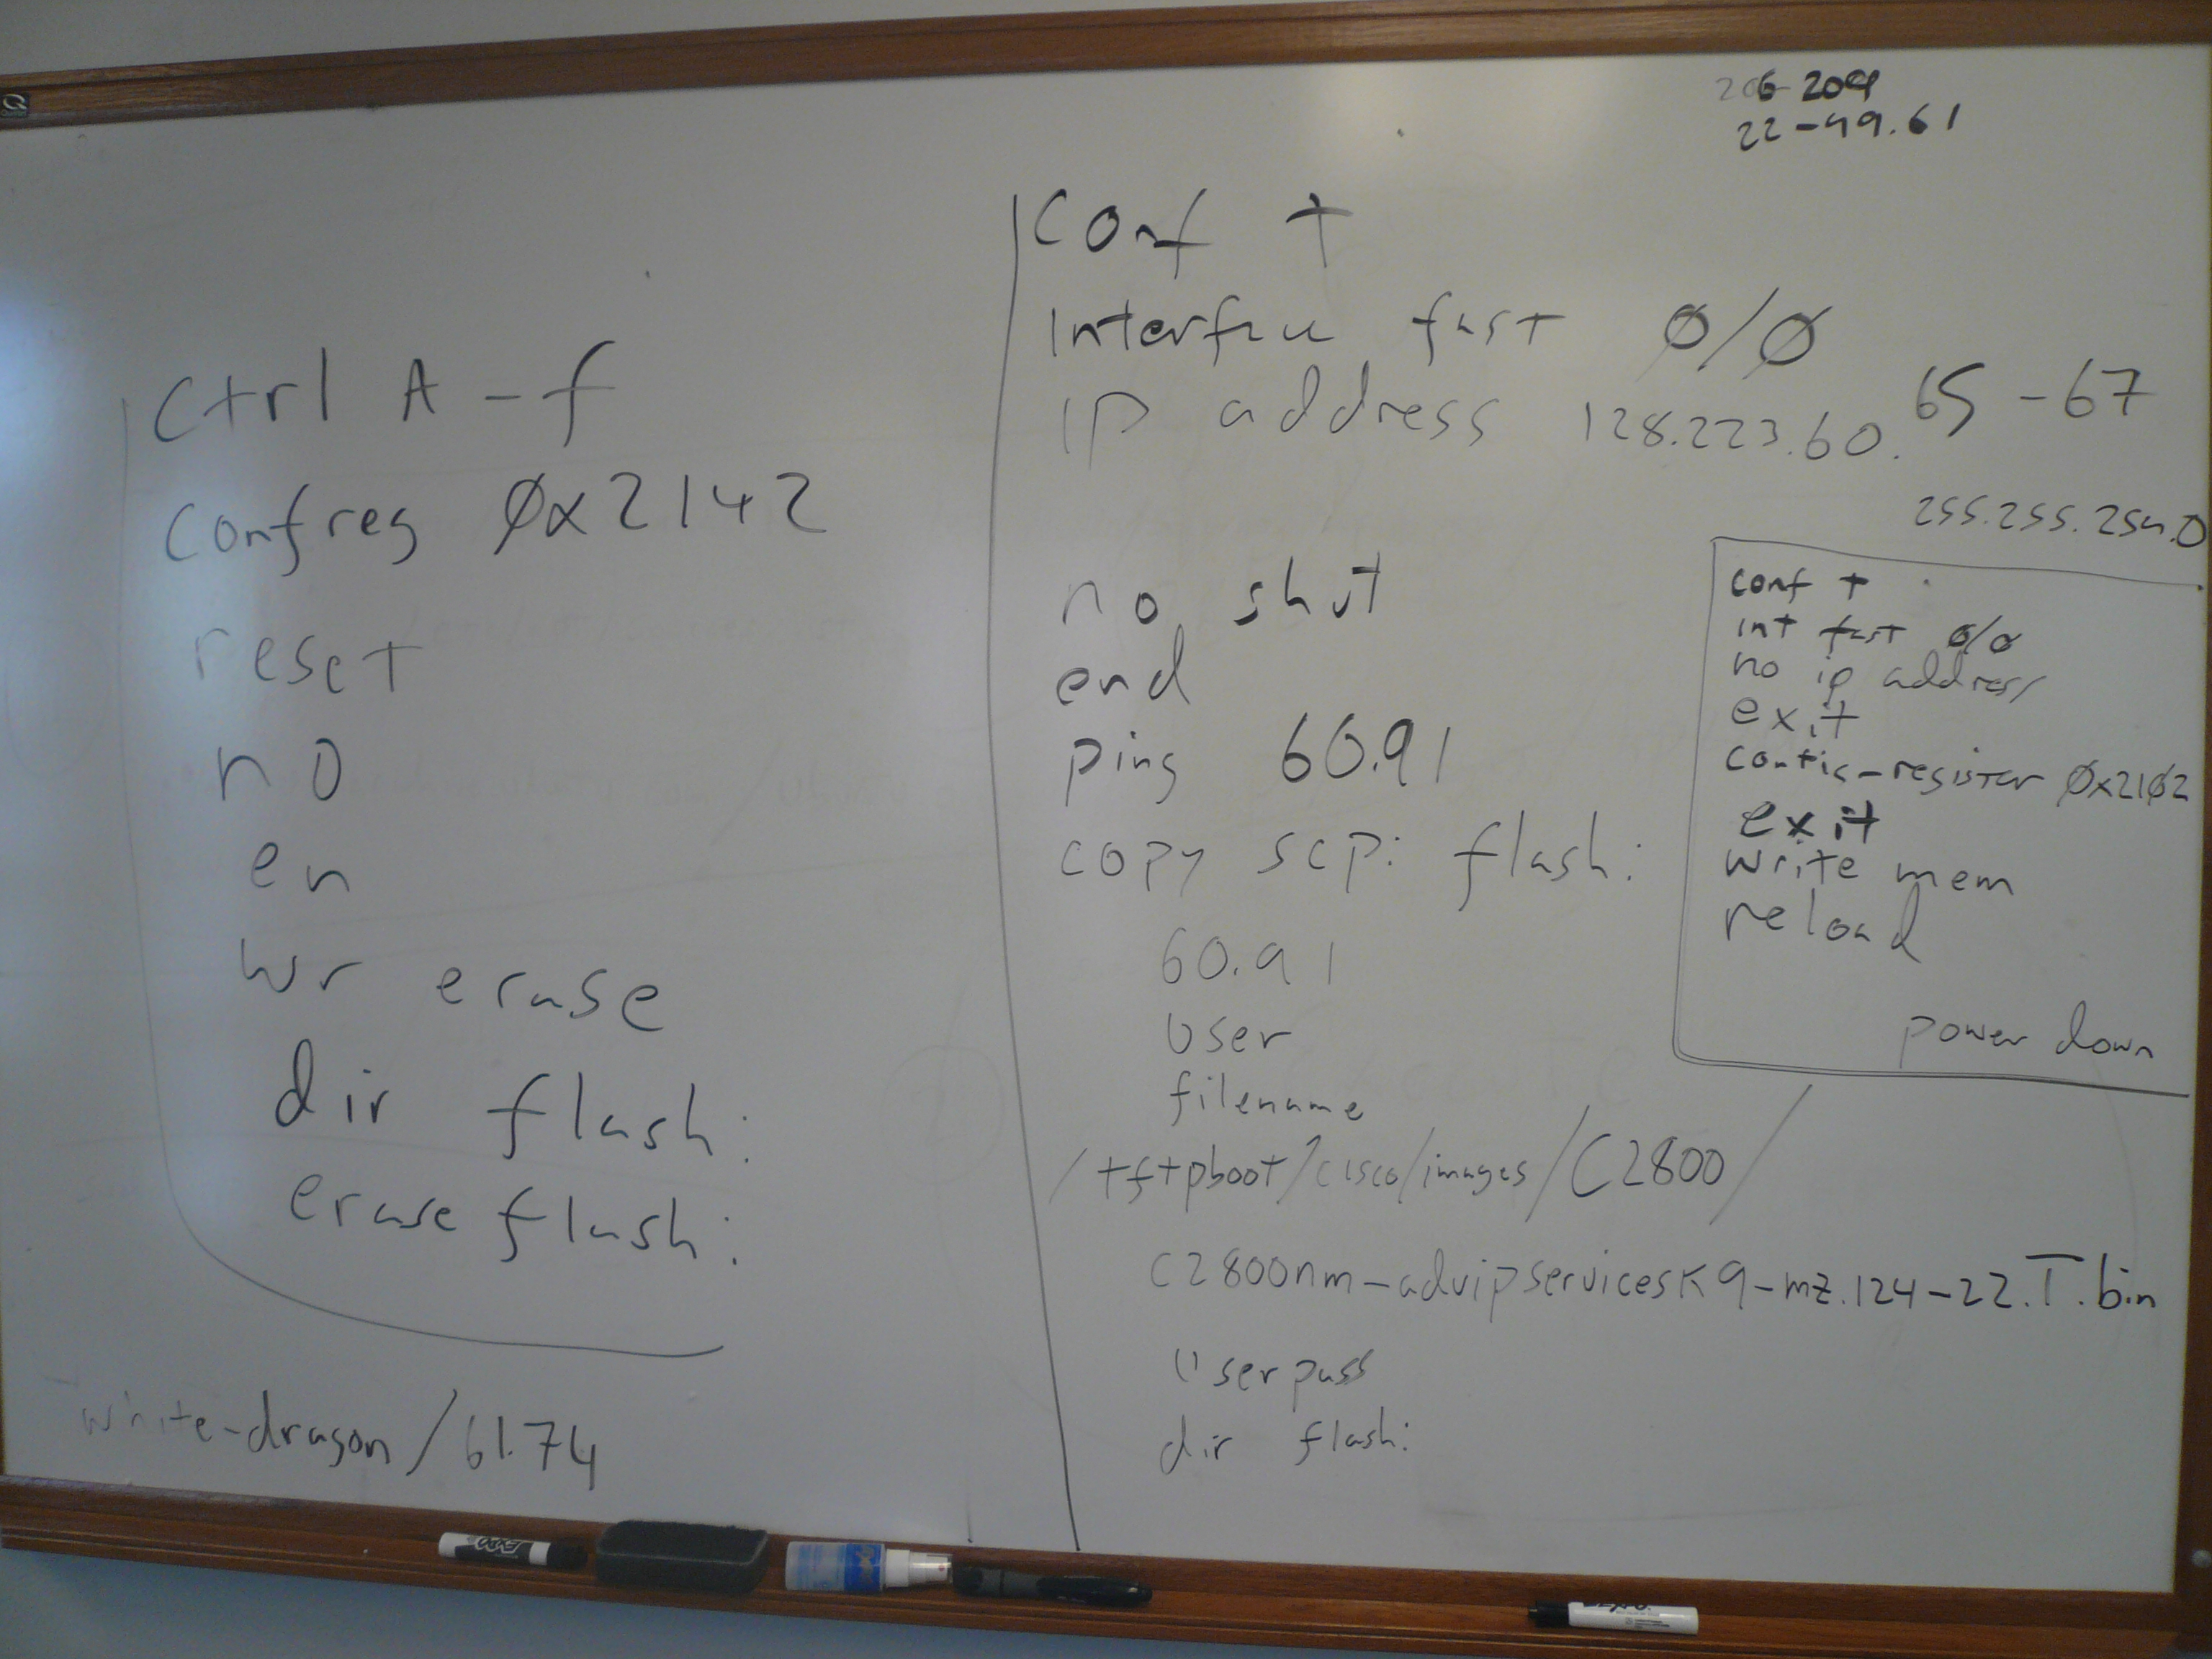 206-209
22-49.61
Ctrl A-f
Confreg 0x2142
reset
no
en
wr erase
dir flash:
erase flash:
white-dragon/61.74
Conf t
Interface fast 0/0
IP address 128.223.60.65-67
255.255.254.0
no shut
end
ping 60.91
copy scp: flash:
60.91
User
filename
/tftpboot/cisco/images/C2800/
C2800nm-advipservicesk9-mz.124-22.T.bin
User pass
dir flash:
conf t
int fast 0/0
no ip address
exit
config-register 0x2102
exit
write mem
reload
power down